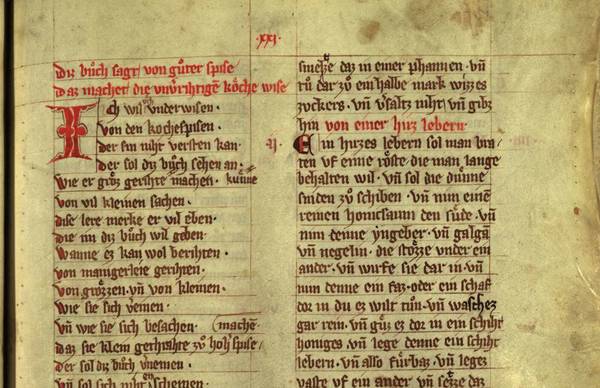 .xxi.
Diz bůch sagt von gůter spise
Daz machet die vnv̊rihtigē kȫche wise
Ich wil vnderwisen.
von den kochespisen.
der sin niht versten kan.
der sol diz bůch sehen an.
wie er groz gerihte mache. kūnne
von vil kleinen sachen.
dise lere merke er vil eben.
die im diz bůch wil geben.
wanne ez kan wol berihten.
von manigerleie gerihten.
von grozzen. vñ von kleinen.
wie sie sich vereinen.
vñ wie sie sich besachen. machē
daz sie klein gerihte zů hoh spise
der sol diz bůch v̄nemen.
vñ sol sich niht schemen.
smeltze daz in einer phannen. vñ
tů dar zů ein halbe mark wizzes
zvckers. vñ v̄saltz niht. vñ gibz
hin von einer hirz lebern
.ij.
Ein hirzes lebern sol man bra
ten vf eime röste. die man lange
behalten wil. vñ sol die dünne
sniden zů schiben. vñ nim einē
reinen honicsaum den sůde. vñ
nim denne yngeber. vñ galgā
vñ negelin. die stözze vnder ein
ander. vñ wurfe sie dar in. vñ
nim denne ein faz. oder ein schaf
dor in du ez wilt tůn. vñ waschez
gar rein. vñ gůz ez dor in ein schiht
honiges. vñ lege denne ein schiht
lebern. vñ also fürbaz. vñ legez
vaste vf ein ander. vñ setze daz